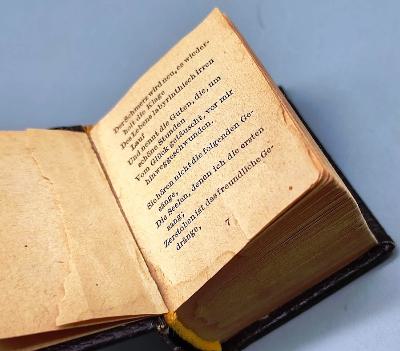 Der Schmerz wird neu, es wieder-
holt die Klage
Des Lebens labyrinthisch irren
Lauf
Und nennt die Guten, die, um
schöne Stunden
Vom Glück getäuscht, vor mir
hinweggeschwunden.
Sie hören nicht die folgenden Ge-
sänge,
Die Seelen, denen ich die ersten
sang,
Zerstoben ist das freundliche Ge-
dränge,
7